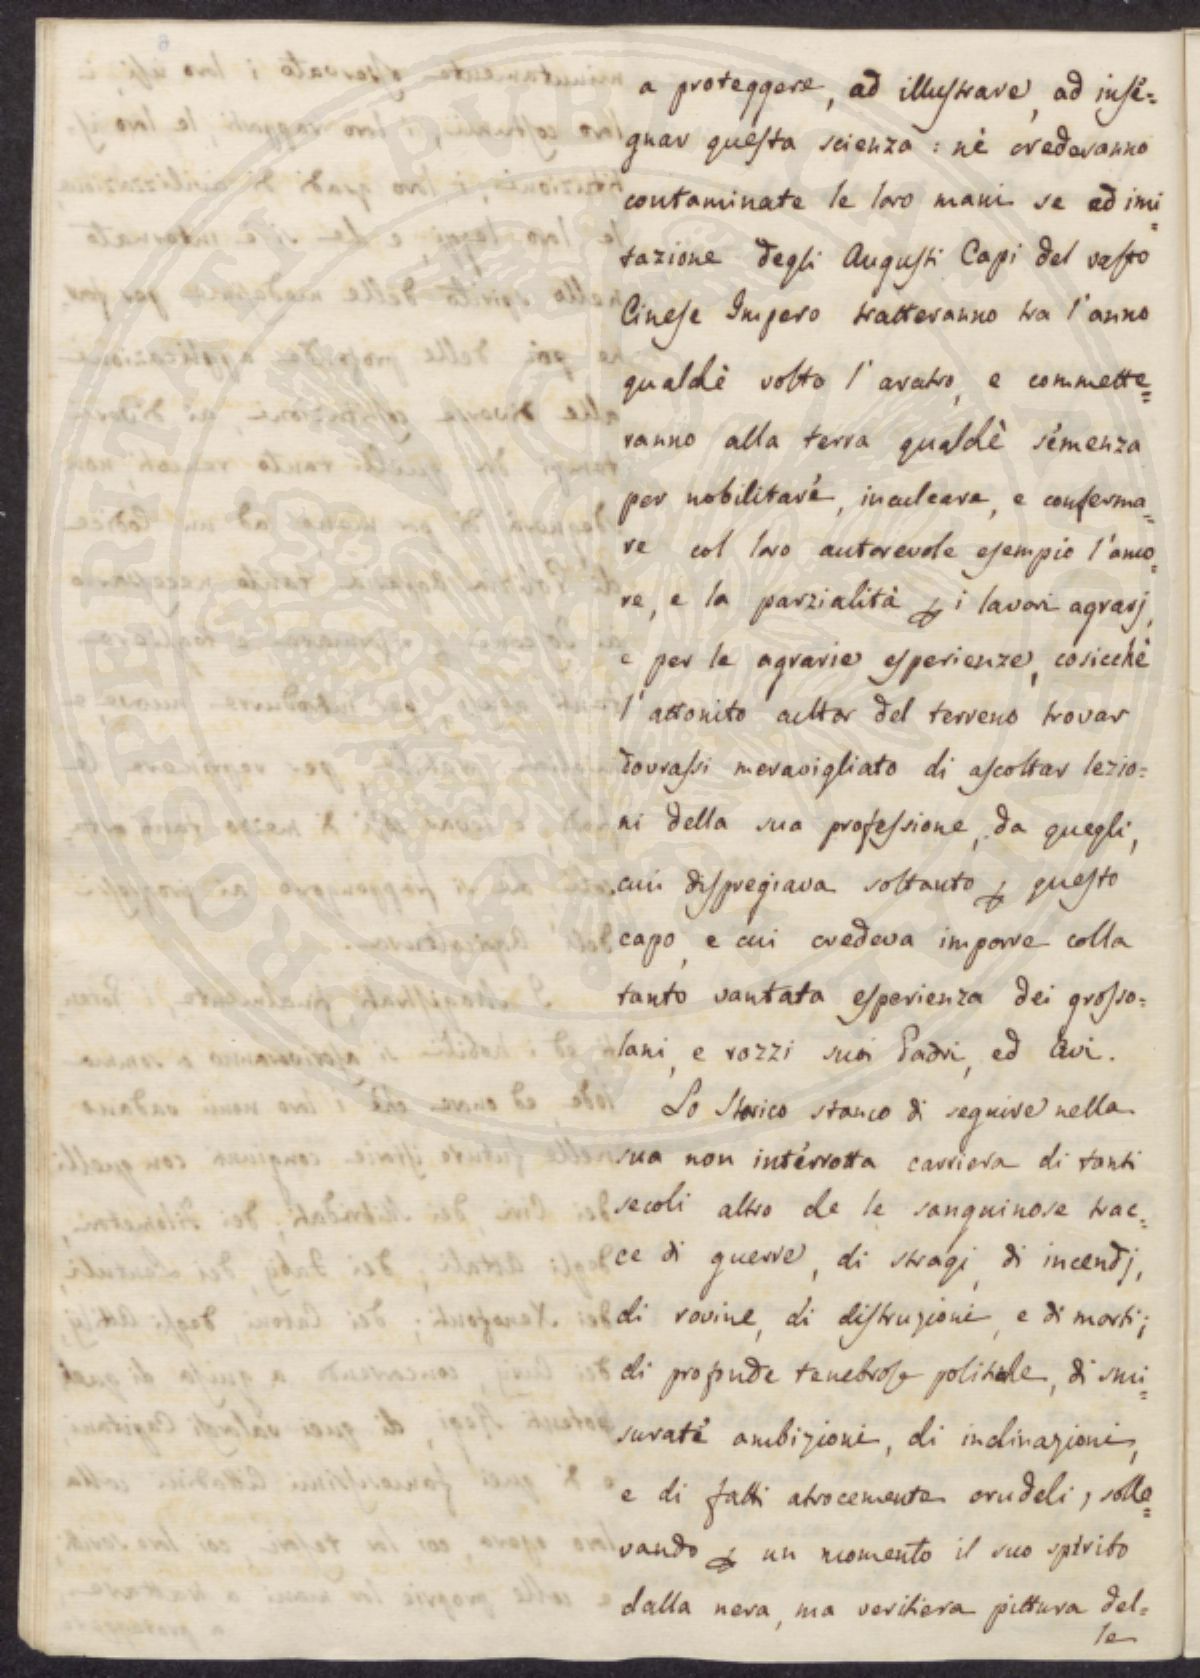 a proteggere, ad illustrare, ad inse=
gnar questa scienza: nè crederanno
contaminate le loro mani se ad imi=
tazione degli Augusti Capi del vasto
Cinese Impero tratteranno tra l'anno
qualchè volta l'aratro, e commette=
ranno alla terra qualchè semenza
per nobilitare, inculcare, e conferma=
re col loro autorevole esempio l'amo=
re, e la parzialità p i lavori agrarj,
e per le agrarie esperienze, cosicchè
l'attonito cultor del terreno trovar
dovrassi meravigliato di ascoltar lezio=
ni della sua professione, da quegli,
cui dispregiava soltanto p questo
capo, e cui credeva imporre colla
tanto vantata esperienza dei grosso=
lani, e rozzi suoi Padri, ed Avi.
Lo Storico stanco di seguire nella
sua non interrotta carriera di tanti
secoli altro che le sanguinose trac=
ce di guerre, di stragi, di incendj,
di rovine, di distruzioni, e di morti;
di profonde tenebrose politiche, di smi=
surate ambizioni, di inclinazioni,
e di fatti atrocemente crudeli, solle=
vando p un momento il suo spirito
dalla nera, ma veritiera pittura del=
le